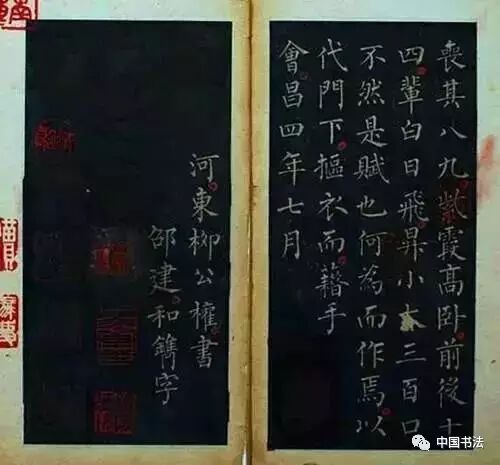 喪其八九紫霞高卧前後十
四輩白日飛昇小大三百口
不然是賦也何為而作焉以
代門下摳衣而籍手
會昌四年七月
河東柳公權書
邵建和鐫字
中国书法